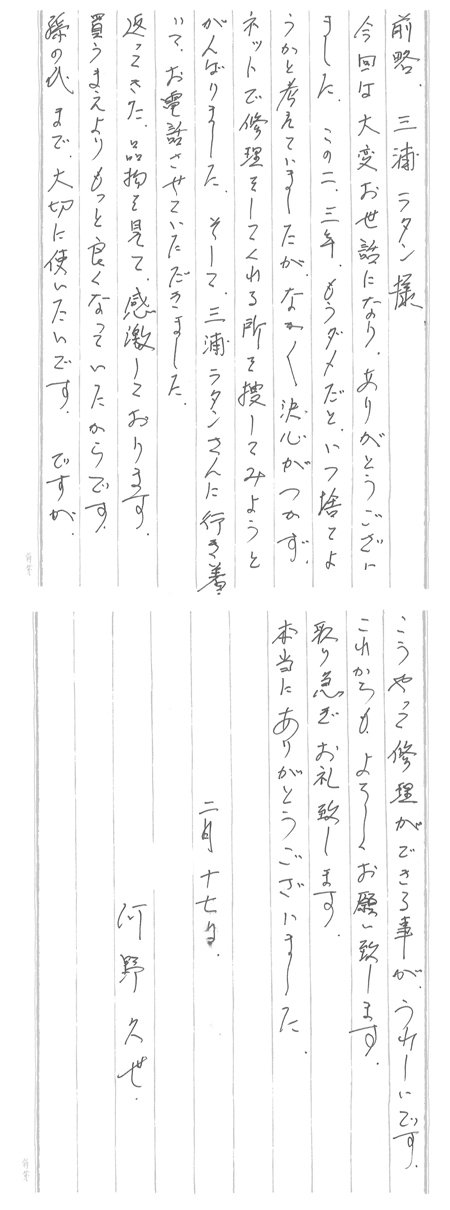 前略、三浦ラタン様
今回は大変お世話になり、ありがとうござい
ました。この二、三年、もうダメだと、いつ捨てよ
うかと考えていましたが、なかなか決心がつかず、
ネットで修理をしてくれる所を捜してみようと
がんばりました。そして、三浦ラタンさんに行き着
いて、お電話させていただきました。
返ってきた、品物を見て、感激しております。
買うまえよりもっと良くなっていたからです。
孫の代まで、大切に使いたいです。ですが、
こうやって修理ができる事が、うれしいです。
これからも、よろしくお願い致します。
取り急ぎお礼致します。
本当にありがとうございました。
二月十七日、
河野久世、